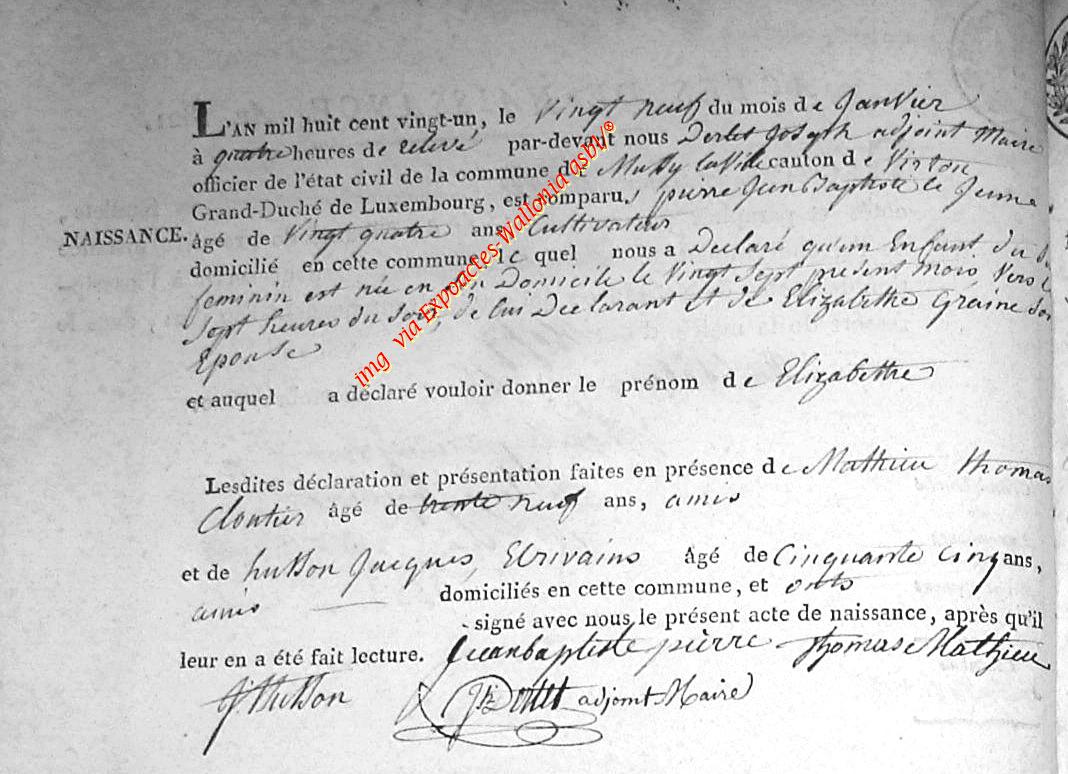 L'AN mil huit cent vingt-un, le Vingt neuf du mois de Janvier
à quatre heures de relevé par-devant nous Derlet Joseph adjoint Maire
officier de l'état civil de la commune de Mussy laville canton de Virton
Grand-Duché de Luxembourg, est comparu, pierre Jean Baptiste le Jeune
NAISSANCE. âgé de Vingt quatre ans Cultivateur
domicilié en cette commune le quel nous a Declaré qu'un Enfant du
feminin est née en Domicile le Vingt Sept présent mois Vers
Sept heures du Soir, de lui Declarant et de Elizabethe Graine Son
Epouse
et auquel a déclaré vouloir donner le prénom de Elizabethe
Lesdites déclaration et présentation faites en présence de Mathieu thomas
Cloutier âgé de trente neuf ans, amis
et de husson Jacques, Ecrivains âgé de Cinquante cinq ans,
amis domiciliés en cette commune, et onts
signé avec nous le présent acte de naissance, après qu'il
leur en a été fait lecture. Jeanbaptiste pierre thomas Mathieu
J husson adjoint Maire
img via Expoactes-Wallonia asbl®